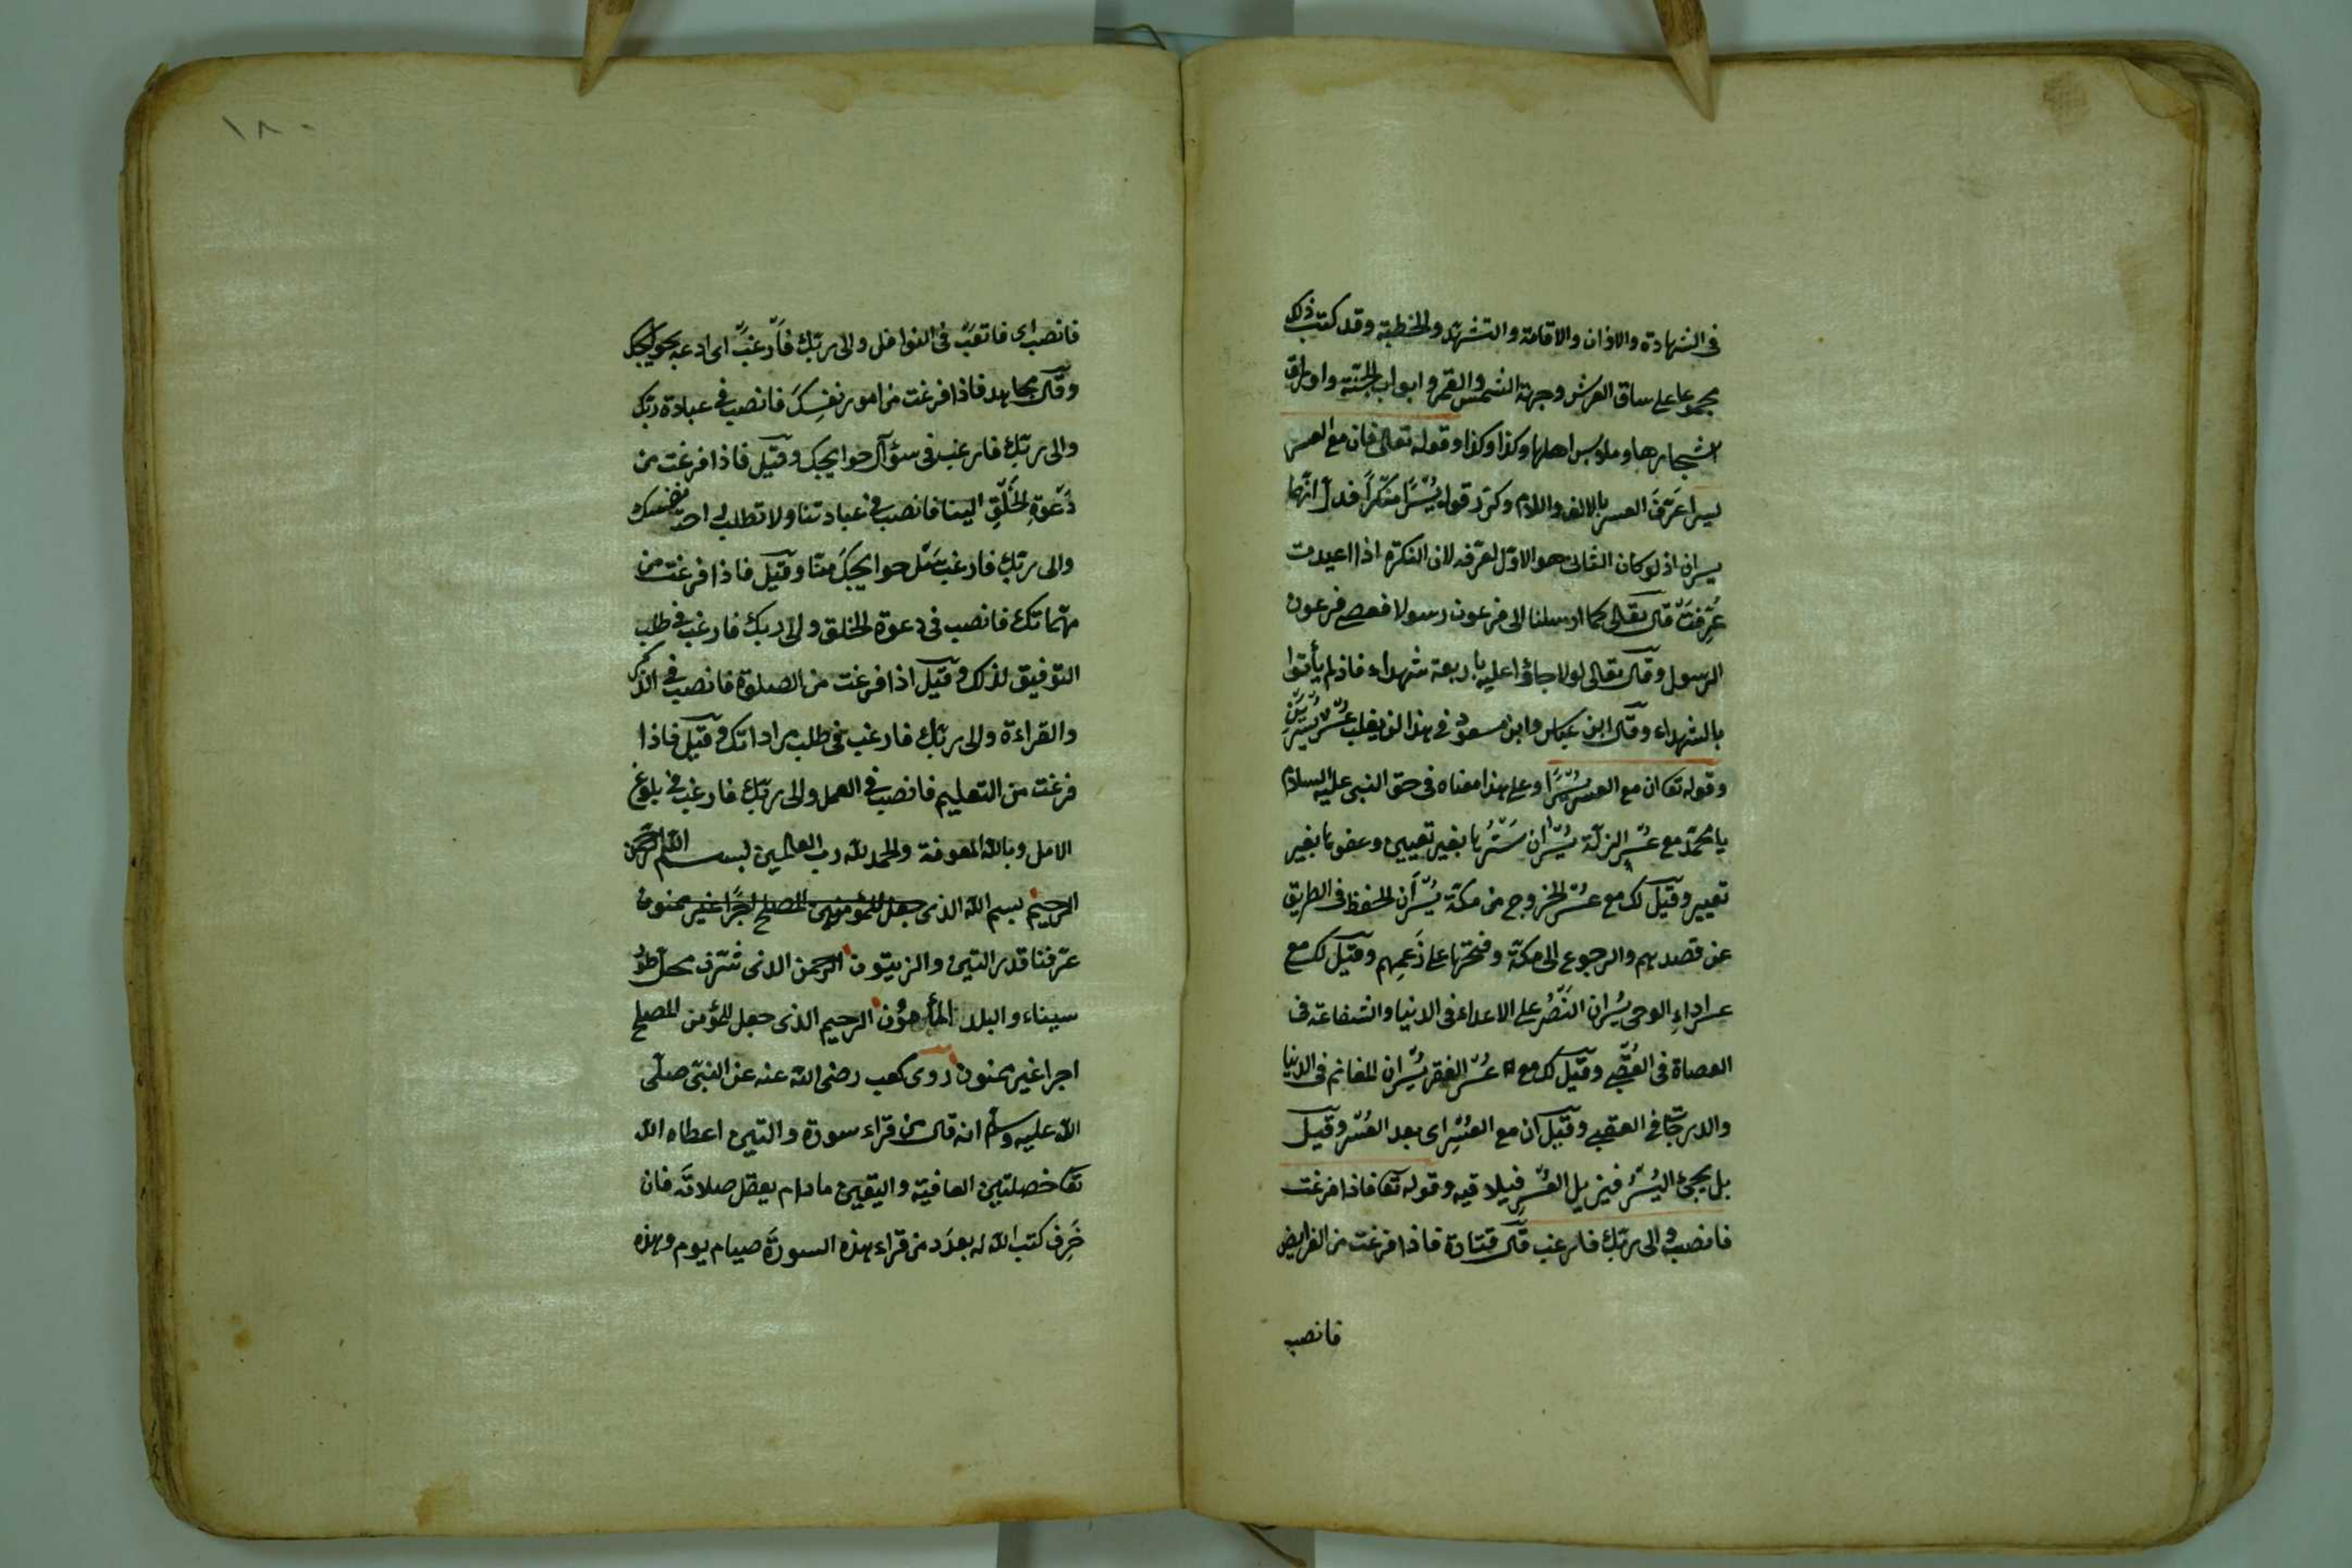 فى الشهادة والاذان والاقامة والتشهد والخطبة وقد كتب ذلك
مجموعا على ساق العرش وجبهة الشمس والقمر وابواب الجنة واوراق
اشجارها وملابس اهلها وكذا وكذا وقوله تعالى فان مع العسر
يسرا عَرَّفَ العسر بالالف واللام وكرّر قوله يُسْرًا منَكّراً فدل انّهما
يسران اذ لو كان الثانى هو الاوّل لعرّفه لان النكرة اذا اعيدت
عُرِّفَتْ قال تعالى كما ارسلنا الى فرعون رسولا فعصى فرعون
الرسول وقال تعالى لولا جاؤا عليه باربعة شهداء فاذ لم يأتوا
بالشهداء وقال ابن عباس وابن مسعود فى هذا لن يغلب عُسْرٌ يُسْرَيْنِ
وقوله تعا ان مع العسر يُسْرًا وعلى هذا معناه فى حق النبى عليه السلام
يا محمّد مع عُسْرِ الزلّة يُسْران سَتْرُها بغير تعييب وعفوها بغير
تعيير وقيل لك مع عُسْر الخروج من مكّة يُسْرَان الحفظ فى الطريق
عن قصدهم والرجوع الى مكّة وفتحها على زَعمِهم وقيل لك مع
عسر اداءِ الوحى يُسْران النَّصْرُ على الاعداء فى الدنيا والشفاعة فى
العصاة فى العُقْبى وقيل لك مع عُسْر الفقر يُسْران المغانم فى الدنيا
والدرجات فى العقبى وقيل ان مع العُسْرِ اى بعد العُسْر وقيل
بل يجئ اليُسْرُ فيزيل العُسْرَ فيلاقيه وقوله تعا فاذا فرغت
فانصب والى ربّك فارغب قال قتادة فاذا فرغت من الفرايض
فانصب
١٨٠
فانصب اى فاتعَبْ فى النوافل والى ربّك فَارغَبْ اى ادعه بحوايجك
وقال مجاهد فاذا فرغت من امور نفسِكَ فانصب فى عبادة ربّك
والى ربّك فارغب فى سؤال حوايجك وقيل فاذا فرغت من
دَعْوةِ الخَلْقِ الينا فانصب فى عبادتنا ولا تطلب لى احد
والى ربّك فارغب سَل حوايجكَ منّا وقيل فاذا فرغت من
مهمّاتك فانصب فى دعوة الخلق والى ربك فارغب فى طلب
التوفيق لذلك وقيل اذا فرغت من الصلوة فانصب فى الذكر
والقراءة والى ربّك فارغب فى طلب مراداتك وقيل فاذا
فرغت من التعليم فانصب فى العمل والى ربّك فارغب فى بلوغ
الامل وبالله المعونة والحمد لله رب العالمين بسم الله الرحمن
الرحيم بسم الله الذى جعل للمؤمنين المصلح اجرًا غير ممنون
عرّفنا قدر التين والزيتون الرحمن الذى شرّف محل طور
سيناء والبلد المأمون الرحيم الذى جعل للمؤمن المصلح
اجرا غير ممنون روى كعب رضى الله عنه عن النبى صلّى
الله عليه وسلم انه قال من قراء سورة والتين اعطاه الله
تعا خصلتين العافية واليقين مادام يعقل صلاته فان
خَرِفَ كتب الله له بعدَد من قراء هذه السورة صيام يوم وهذه